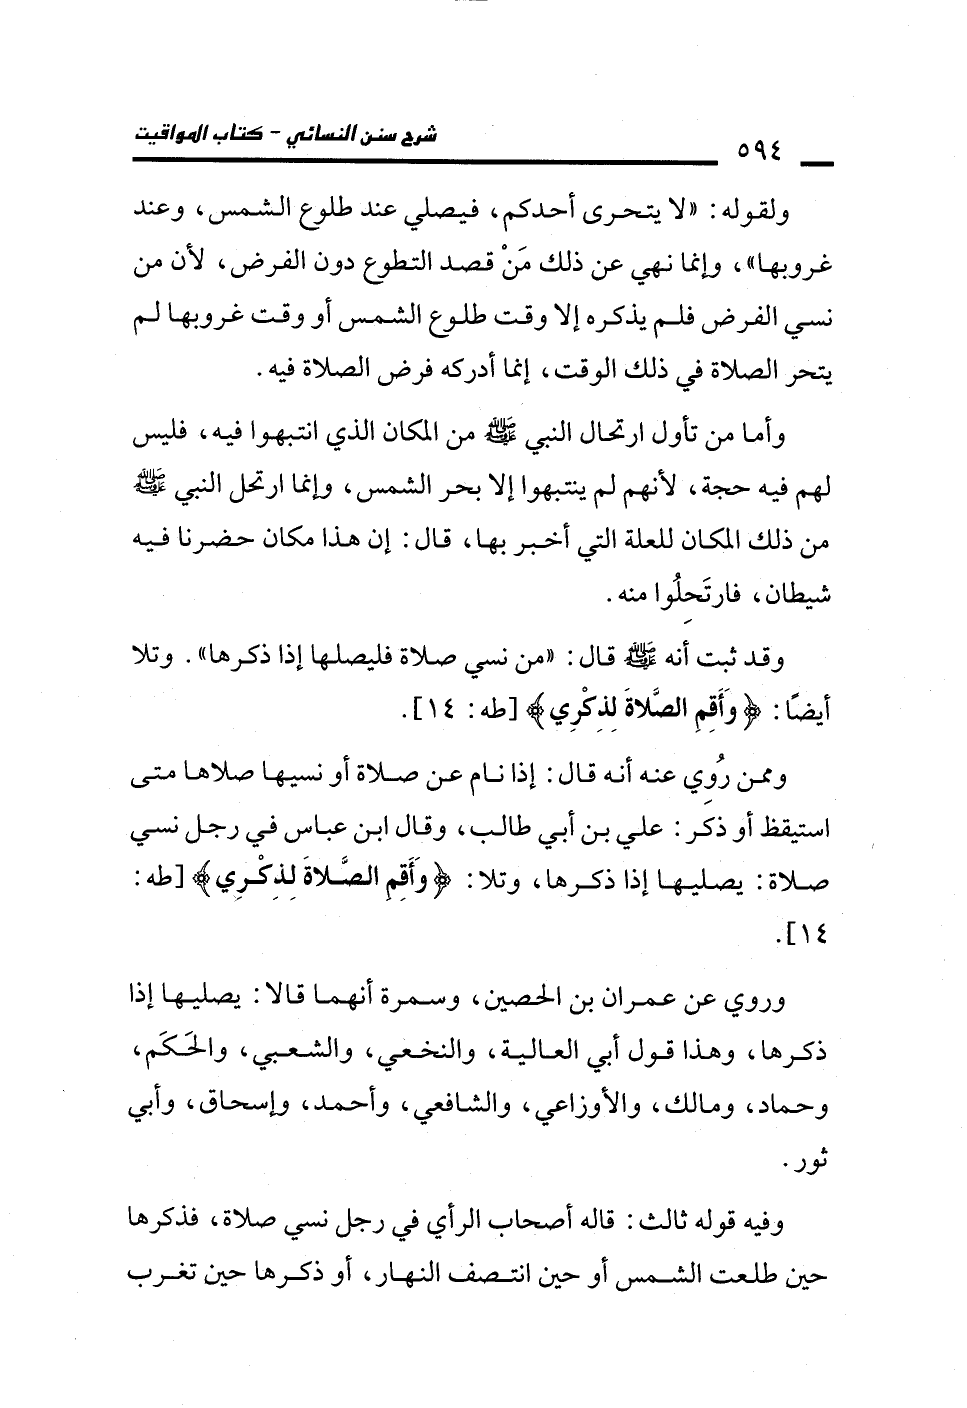 ٥٩٤ شرح سنن النسائي - كتاب المواقيت
ولقوله: «لا يتحرى أحدكم، فيصلي عند طلوع الشمس، وعند
غروبها»، وإنما نهي عن ذلك مَنْ قصد التطوع دون الفرض، لأن من
نسي الفرض فلم يذكره إلا وقت طلوع الشمس أو وقت غروبها لم
يتحر الصلاة في ذلك الوقت، إنما أدركه فرض الصلاة فيه.
وأما من تأول ارتحال النبي ﷺ من المكان الذي انتبهوا فيه، فليس
لهم فيه حجة، لأنهم لم ينتبهوا إلا بحر الشمس، وإنما ارتحل النبي ﷺ
من ذلك المكان للعلة التي أخبر بها، قال: إن هذا مكان حضرنا فيه
شيطان، فارتَحِلُوا منه.
وقد ثبت أنه ﷺ قال: «من نسي صلاة فليصلها إذا ذكرها». وتلا
أيضًا: ﴿وَأَقِمِ الصَّلاةَ لِذِكْرِي﴾ [طه: ١٤].
وممن رُوِي عنه أنه قال: إذا نام عن صلاة أو نسيها صلاها متى
استيقظ أو ذكر: علي بن أبي طالب، وقال ابن عباس في رجل نسي
صلاة: يصليها إذا ذكرها، وتلا: ﴿وَأَقِمِ الصَّلاةَ لِذِكْرِي﴾ [طه:
١٤].
وروي عن عمران بن الحصين، وسمرة أنهما قالا: يصليها إذا
ذكرها، وهذا قول أبي العالية، والنخعي، والشعبي، والحَكَم،
وحماد، ومالك، والأوزاعي، والشافعي، وأحمد، وإسحاق، وأبي
ثور.
وفيه قوله ثالث: قاله أصحاب الرأي في رجل نسي صلاة، فذكرها
حين طلعت الشمس أو حين انتصف النهار، أو ذكرها حين تغرب